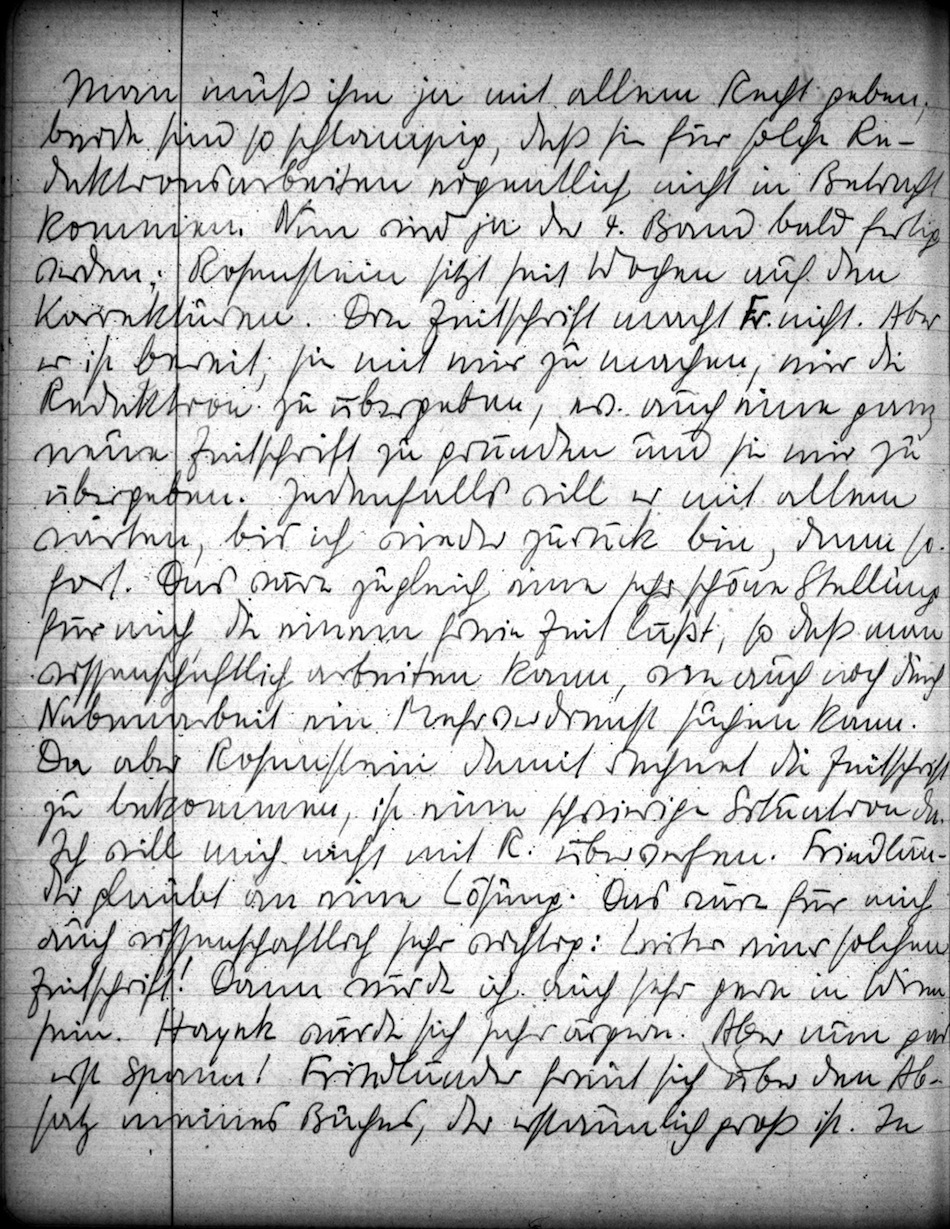 Man muß ihm ja mit allem Recht geben,
beide sind so schlampig, daß sie für solche Re-
daktionsarbeiten eigentlich nicht in Betracht
kommen. Nun wird ja der 4. Band bald fertig
werden; Rosenstein sitzt seit Wochen auf den
Korrekturen. Die Zeitschrift macht Fr. nicht. Aber
er ist bereit, sie mit mir zu machen, mir die
Redaktion zu übergeben, ev. auch eine ganz
neue Zeitschrift zu gründen und sie mir zu
übergeben. Jedenfalls will er mit allem
warten, bis ich wieder zurück bin, dann so-
fort. Das wäre zugleich eine sehr schöne Stellung
für mich, die einem freie Zeit läßt, so daß man
wissenschaftlich arbeiten kann, wie auch noch durch
Nebenarbeit ein Mehrverdienst suchen kann.
Da aber Rosenstein damit rechnet die Zeitschrift
zu bekommen, ist eine schwierige Situation da.
Ich will mich nicht mit R. überwerfen. Friedlän-
der glaubt an eine Lösung. Das wäre für mich
auch wissenschaftlich sehr wichtig: Leiter einer solchen
Zeitschrift! Dann würde ich auch sehr gern in Wien
sein. Hayek würde sich sehr ärgern. Aber nun gar
erst Spann! Friedländer freut sich über den Ab-
satz meines Buches, der erstaunlich groß ist. In